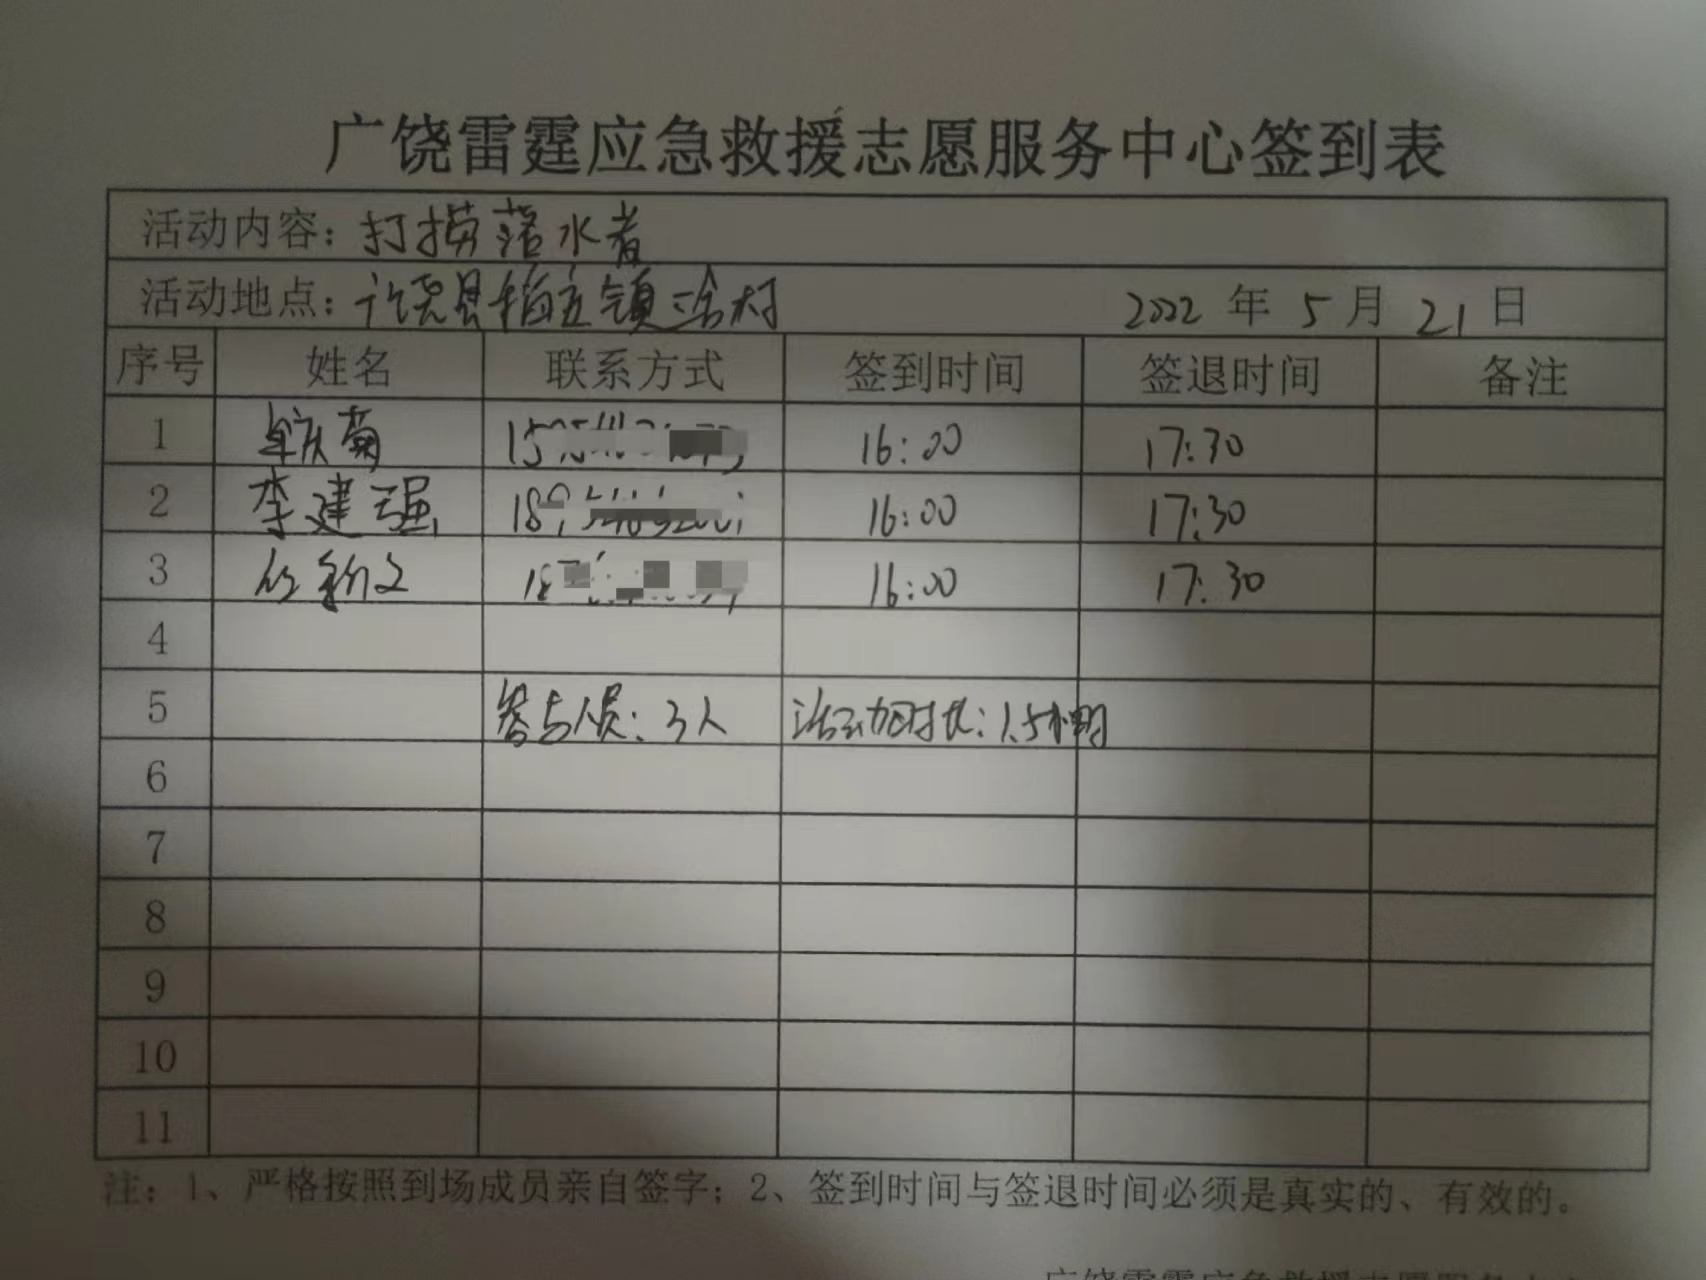 广饶雷霆应急救援志愿服务中心签到表
活动内容：打捞落水者
活动地点：广饶县稻庄镇 村 2022 年 5 月 21 日
序号 姓名 联系方式 签到时间 签退时间 备注
1 16:00 17:30
2 李建强 16:00 17:30
3 16:00 17:30
4
5 参与人员：3人 活动时长：1.5小时
6
7
8
9
10
11
注：1、严格按照到场成员亲自签字；2、签到时间与签退时间必须是真实的、有效的。